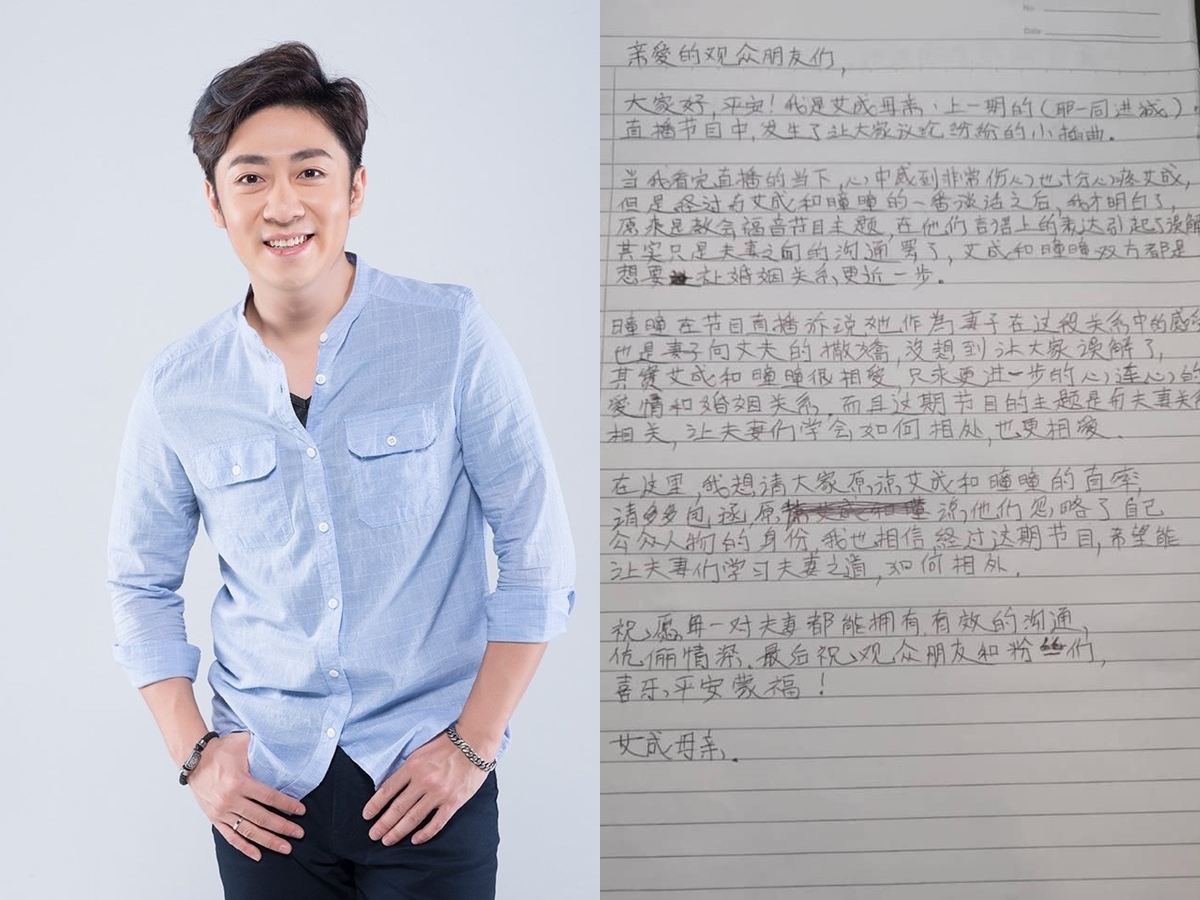 No
Date
亲爱的观众朋友们,
大家好,平安!我是艾成母亲,上一期的(耶一同进城)
直播节目中,发生了让大家议论纷纷的小插曲。
当我看完直播的当下,心中感到非常伤心也十分心疼艾成,
但是经过与艾成和瞳瞳的一番谈话之后,我才明白了,
原来是教会福音节目主题,在他们言语上的表达引起了误解
其实只是夫妻之间的沟通罢了,艾成和瞳瞳双方都是
想要让婚姻关系更近一步。
瞳瞳在节目直播亦说她作为妻子在这段关系中的感
也是妻子向丈夫的撒嬌,没想到让大家误解了,
其實艾成和瞳瞳很相爱,只求更进一步的心连心的
爱情和婚姻关系,而且这期节目的主题是与夫妻关
相关,让夫妻们学会如何相处,也更相爱.
在这里,我想请大家原谅艾成和瞳瞳的直率,
请多多包涵,原谅他们忽略了自己
公众人物的身份,我也相信经过这期节目,希望能
让夫妻们学习夫妻之道,如何相处.
祝愿每一对夫妻都能拥有有效的沟通,
伉俪情深.最后祝观众朋友和粉们,
喜乐,平安蒙福!
艾成母亲.